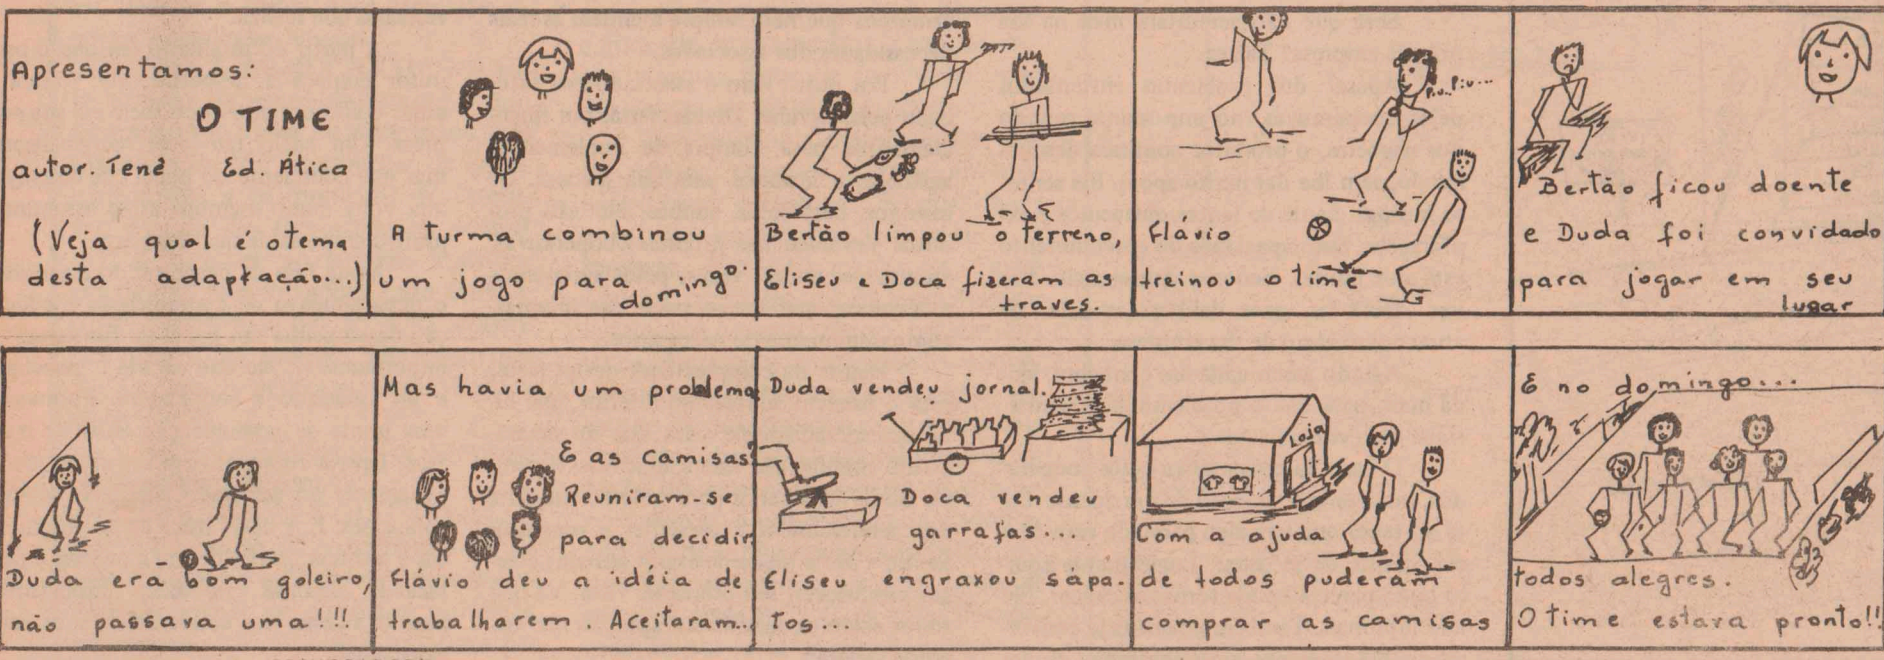 Apresentamos:
O TIME
autor. Tenê Ed. Ática
(Veja qual é o tema
desta adaptação...)
A turma combinou
um jogo para
domingo.
Bertão limpou o terreno,
Eliseu e Doca fizeram as
traves.
Piu.. Piu...
Flávio
treinou o time
Bertão ficou doente
e Duda foi convidado
para jogar em seu
lugar
Duda era bom goleiro,
não passava uma!!!
Mas havia um problema
E as camisas?
Reuniram-se
para decidir
Flávio deu a idéia de
trabalharem. Aceitaram...
Duda vendeu jornal.
Doca vendeu
garrafas...
Eliseu engraxou sapa-
tos...
Loja
Com a ajuda
de todos puderam
comprar as camisas
E no domingo...
todos alegres.
O time estava pronto!!